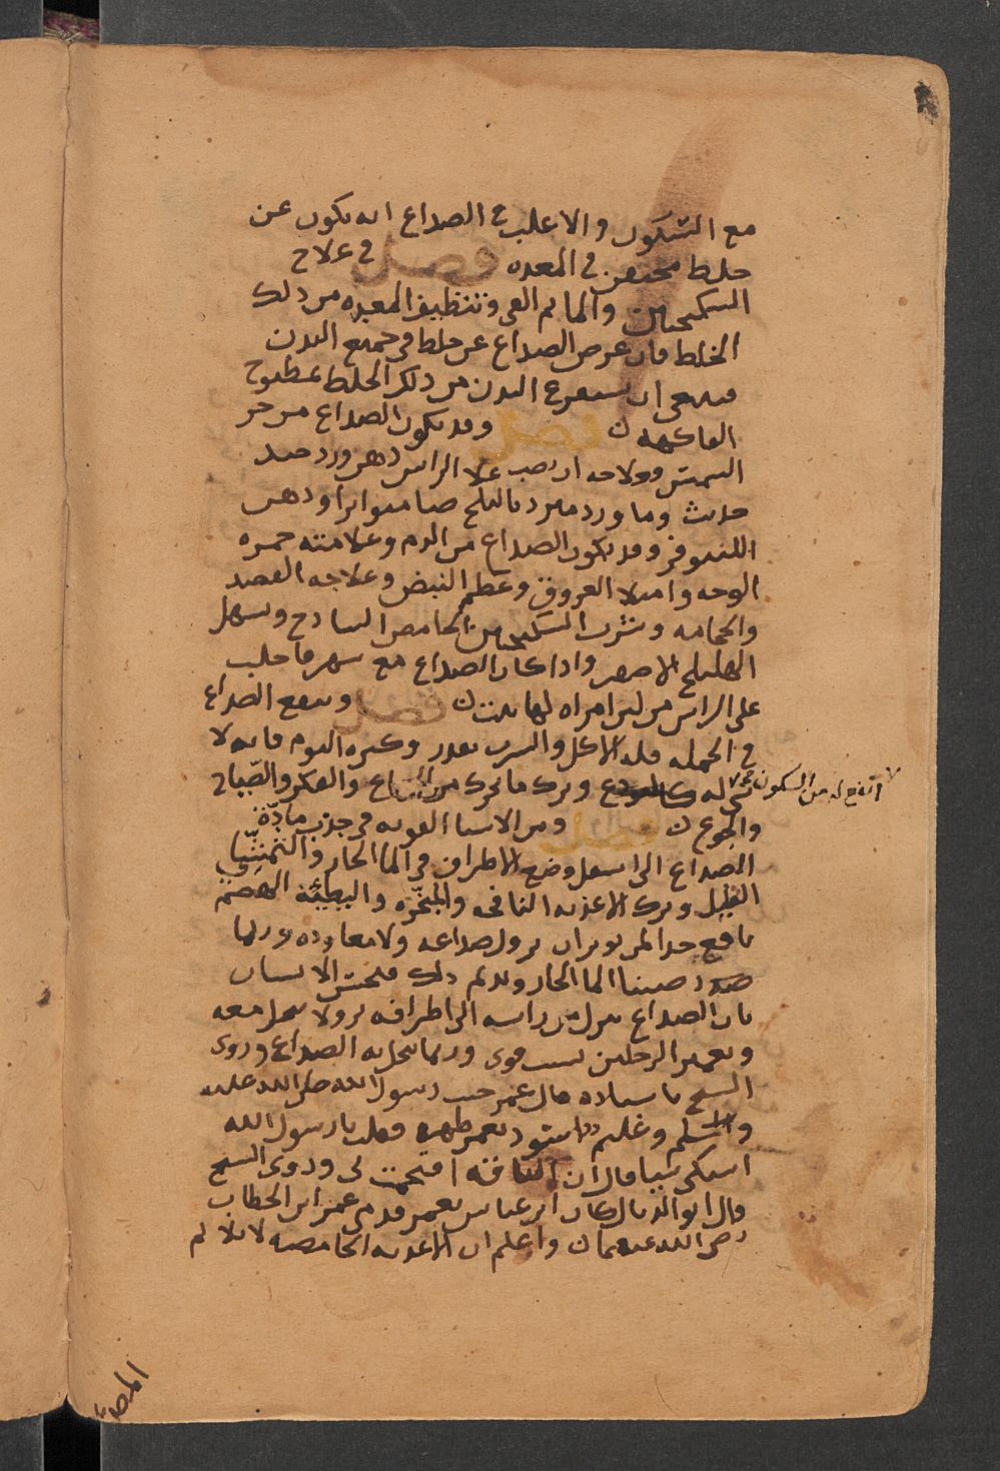 مع السكون والاغلب في الصداع انه يكون عن
خلط محتقن في المعده فصل في علاج
السكنجبين والما ثم القي وتنظيف المعده من ذلك
الخلط فان عرض الصداع عن خلط في جميع البدن
فينبغي ان يستفرغ البدن من ذلك الخلط بمطبوخ
الفاكهه فصل وقد يكون الصداع من حر
الشمس وعلاجه ان يصب علا الراس دهن ورد جيد
حديث وما ورد مبرد بالثلج صبا متواترا ودهن
اللينوفر وقد يكون الصداع من الدم وعلامته حمره
الوجه وامتلا العروق وعظم النبض وعلاجه الفصد
والحجامه وشرب السكنجبين الحامض الساذج ويسهل
الهليلج الاصفر واذا كان الصداع مع سهر فاحلب
على الراس من لبن امراه لها بنت فصل وينفع الصداع
في الجمله قله الاكل والشرب بقدر وكثره النوم فانه لا
شي له وترك ما يحرك من والفكر والصياح
انفع له من السكون
والجوع فصل ومن الاشيا القويه في جذب مادّة
الصداع الى اسفل وضع الاطراف في الما الحار والتمشي
القليل وترك الاغذيه النافخه والمبخّره والبطيئة الهضم
نافع جدا لمن يريد ان يزول صداعه ولا يعاوده وربما
صببنا الما الحار ونديم ذلك فيحس الانسان
بان الصداع ينزل من راسه الى اطرافه نزولا ينحل معه
وبغمز الرجلين بسبب قوى وربما ينحل به الصداع وروى
الشيخ باسناده قال عمر جيت رسول الله صلى الله عليه
والسلم وغليم اسود يغمز ظهره فقلت يا رسول الله
اتشتكي شيا قال ان الناقة اقتحمت بي وروى الشيخ
قال ابو الذيال كان ابن عباس يغمز قدمي عمر ابن الخطاب
رضي الله عنهما واعلم ان الاغذيه الحامضه لا تلايم